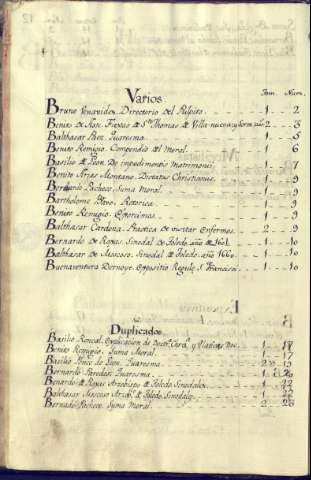 Varios
Tom. Num.
Bruno Venavides. Directorio del Pulpito. 1 2
Benito de San. Fiestas de Sto Thomas de Villanueva 2 3
Balthasar Paez. Quaresma. 1 5
Benito Remigio. Compendio de Moral. 6
Basilio de Leon. De impedimentis Matrimonij. 1 7
Benito Arias Montano. Dictatus Christianus. 1 9
Bernardo Pacheco. Suma Moral. 1 9
Bartholome Bravo. Retorica. 1 9
Benito Remigio. Exorcismos. 1 9
Balthasar Cardona. Practica de visitar Enfermos. 2 9
Bernardo de Rojas. Sinodal de Toledo. año de 1601. 1 10
Balthasar de Moscoso. Sinodal de Toledo. año 1660. 1 10
Buenaventura Dernoye. Oppositio Regule S. Francisci. 1 10
Duplicados
Basilio Explicacion de y 1 17
Benito Remigio. Suma Moral. 1 17
Basilio Ponce de Leon. Quaresma. 2 19
Bernardo Paredes. Quaresma. 1 20
Bernardo de Rojas Arzobispo de Toledo Sinodales. 1 22
Balthasar Moscoso Arzob. de Toledo Sinodales. 2 22
Bernardo Pacheco. Suma Moral. 2 23